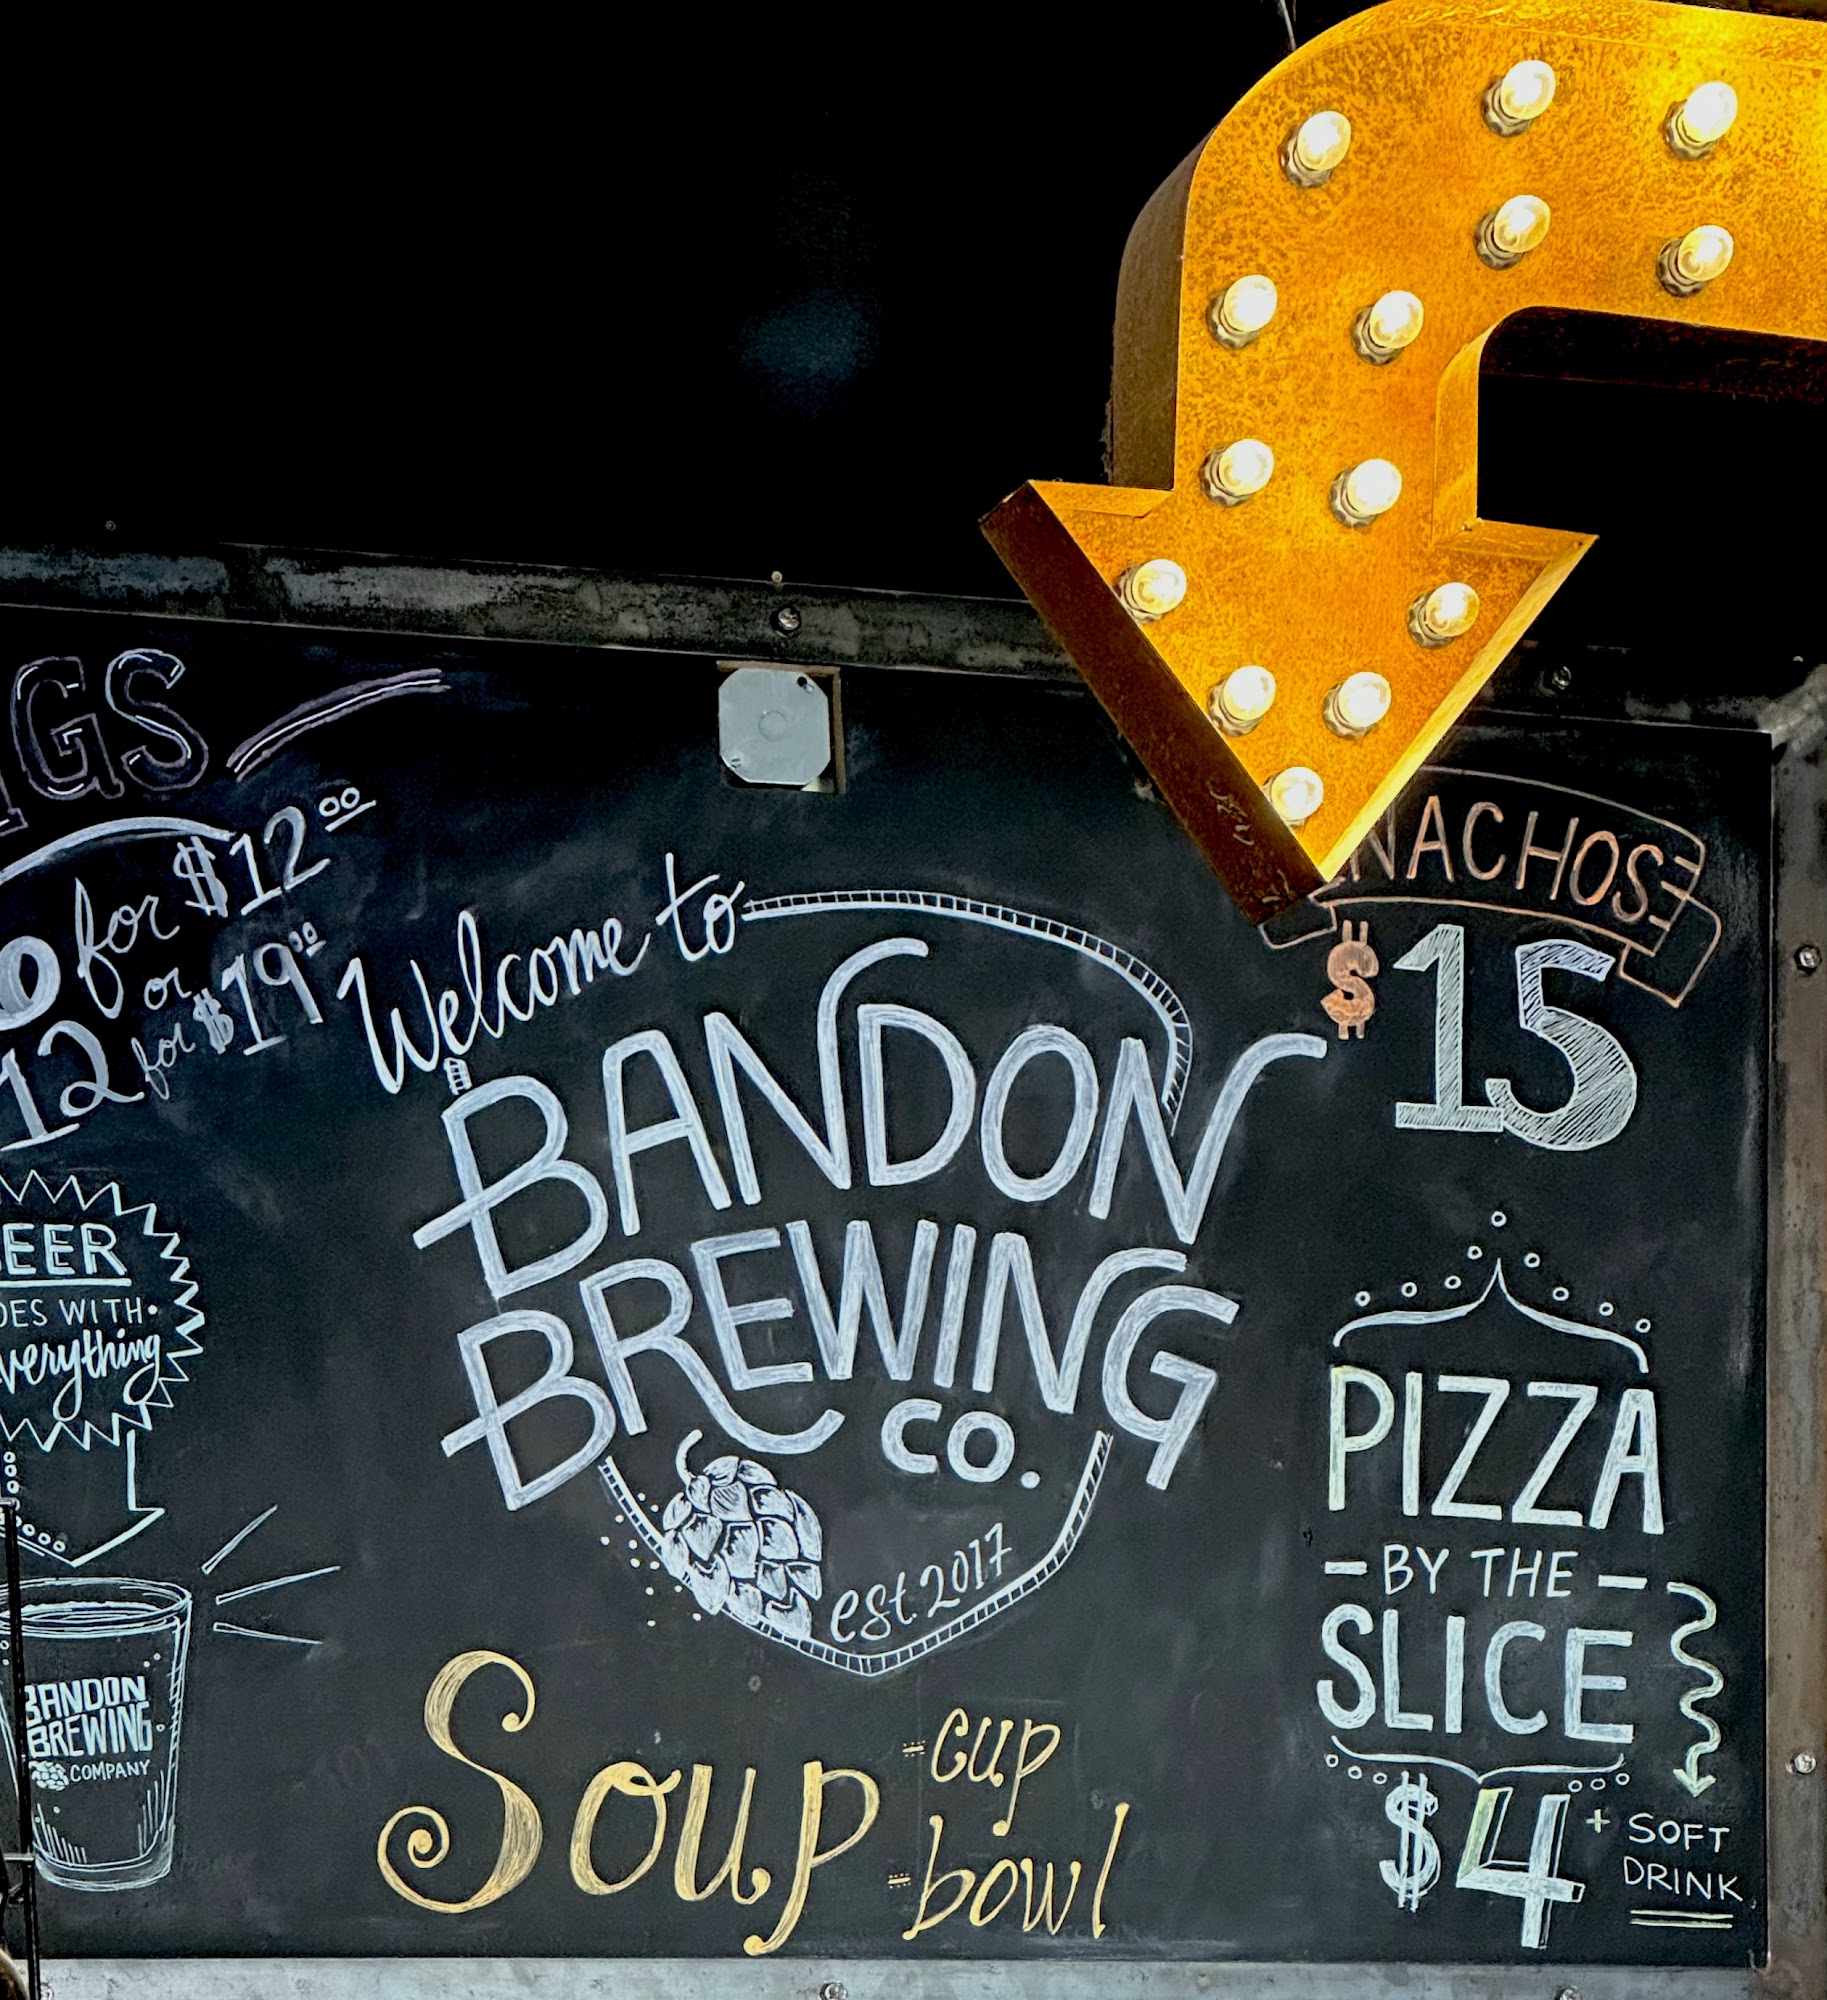 GS
for $12.00
or
12 for $19.00
EER
OES WITH
verything
BANDON
BREWING
COMPANY
Welcome to
BANDON
BREWING
CO.
est. 2017
Soup
cup
bowl
NACHOS
$15
PIZZA
- BY THE -
SLICE
$4 + SOFT
DRINK